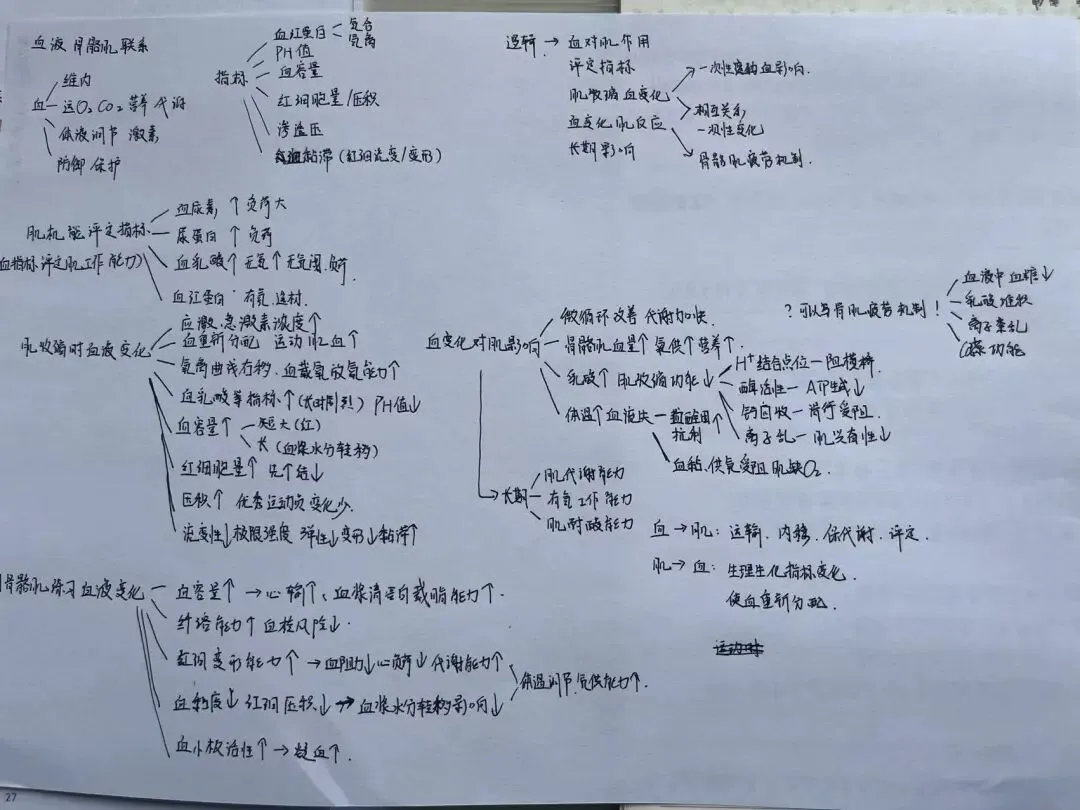 血液 骨骼肌 联系
血
维内
运O₂ CO₂ 营养 代谢
体液调节 激素
防御 保护
指标
血红蛋白
氧合
氧离
PH值
血容量
红细胞量/压积
渗透压
血粘滞(红细流变/变形)
逻辑 → 血对肌作用
评定指标
肌收缩血变化
血变化肌反应
长期影响
一次性运动血影响.
相互关系,
一次性变化
骨骼肌疲劳机制.
肌机能评定指标
(血指标评定肌工作能力)
血尿素 ↑ 负荷大
尿蛋白 ↑ 负荷
血乳酸↑ 无氧↑ 无氧阈.负荷.
血红蛋白 有氧.选材.
肌收缩时血液变化
应激.急激素浓度↑
血重新分配 运动肌血↑
氧离曲线右移.血载氧放氧能力↑
血乳酸等指标↑(长时剧烈) PH值↓
血容量↑
短大(红)
长(血浆水分转移)
红细胞量↑
压积↑ 优秀运动员变化少.
流变性↓极限强度 弹性↓变形↓粘滞↑
血变化对肌影响
微循环改善 代谢加快.
骨骼肌血量↑ 氧供↑营养↑.
乳酸↑ 肌收缩功能↓
H⁺结合点位—阻横桥.
酶活性— ATP生成↓
钙回收—滑行受阻.
离子乱—肌兴奋性↓
体温↑血液失
抗利
血粘.供氧受阻 肌缺O₂.
长期
肌代谢能力
有氧工作能力
肌耐酸能力
? 可以与骨肌疲劳机制!
血液中血糖↓
乳酸堆积
离子紊乱
功能
血→肌: 运输. 内移. 保代谢. 评定.
肌→血: 生理生化指标变化.
使血重新分配.
骨骼肌练习血液变化
血容量↑ →心输↑、血浆清蛋白载脂能力↑.
纤溶能力↑ 血栓风险↓.
红细变形能力↑ →血阻力↓心负荷↓代谢能力↑
血粘度↓ 红细压积↓ → 血浆水分转移影响↓
体温调节.氧供能力↑.
血小板活性↑ → 凝血↑.
27